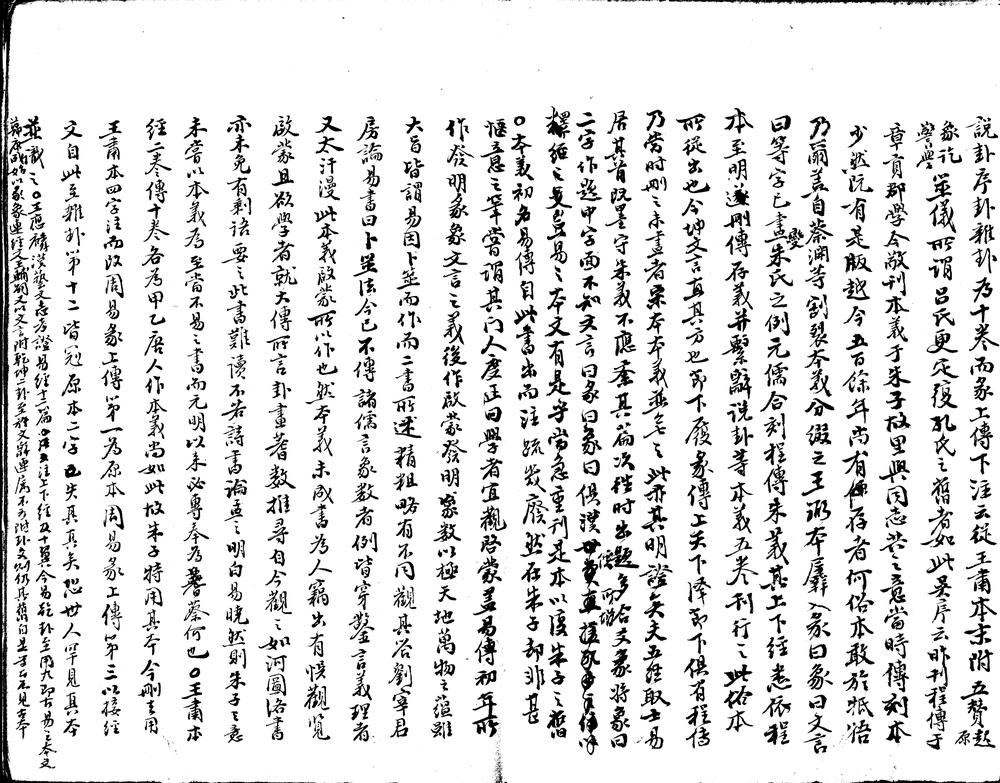 說卦序卦雜卦為十卷而彖上傳下注云從王肅本末附五贊起原
象訖警學筮儀所謂呂氏更定復孔氏之舊者如此吳序云昨刊程傳于
章貢郡學今敬刊本義于朱子故里與同志共之意當時傳刻本
少然既有是版越今五百餘年尚有存者何俗本敢於牴牾
乃爾蓋自蔡淵等割裂本義分綴之王弼本羼入彖曰象曰文言
曰等字已盡變朱氏之例元儒合刻程傳朱義其上下經悉依程
本至明遂刪傳存義并繫辭說卦等本義五卷刊行之此俗本
所從出也今坤文言直其方也節下履象傳上天下澤節下俱有程傳
乃當時刪之未盡者宋本本義並無之此亦其明證矣夫五經取士易
居其首既墨守朱義不應紊其篇次程時出題多合文彖將象曰
二字作題甲字而不知文言曰彖曰象曰俱濮
經之是豈易之本文有是乎尚急重刊是本以復朱子之舊
○本義初名易傳自此書出而注疏幾廢然在朱子却非甚
愜意之筆嘗謂其門人度正曰學者宜觀啓蒙蓋易傳初年所
作發明彖象文言之義後作啟蒙發明象數以極天地萬物之蘊雖
大旨皆謂易因卜筮而作而二書所述精粗略有不同觀其答劉宰君
房論易書曰卜筮法今已不傳諸儒言象數者例皆穿鑿言義理者
又太汗漫此本義啟蒙所以作也然本義未成書為人竊出有悞觀覽
啟蒙且欲學者就大傳所言卦畫蓍數推尋自今觀之如河圖洛書
亦未免有剩語要之此書難讀不若詩書論孟之明白易曉然則朱子之意
未嘗以本義為至當不易之書而元明以來必專奉為蓍蔡何也○王肅本
經二卷傳十卷各為甲乙唐人作本義尚如此故朱子特用其本今刪去用
王肅本四字注而改周易彖上傳第一為原本周易彖上傳第三以接經
文自此至雜卦第十二皆冠原本二字更失其真矣恐世人罕見真本
並識之○王應麟漢藝文志考證易經十二篇注上下經及十翼今易乾卦至用九即古易之本文
鄭康成始以彖象連經文王輔嗣又以文言附乾坤二卦至於文辭連屬不可附卦爻則仍其舊自是古本不見古本